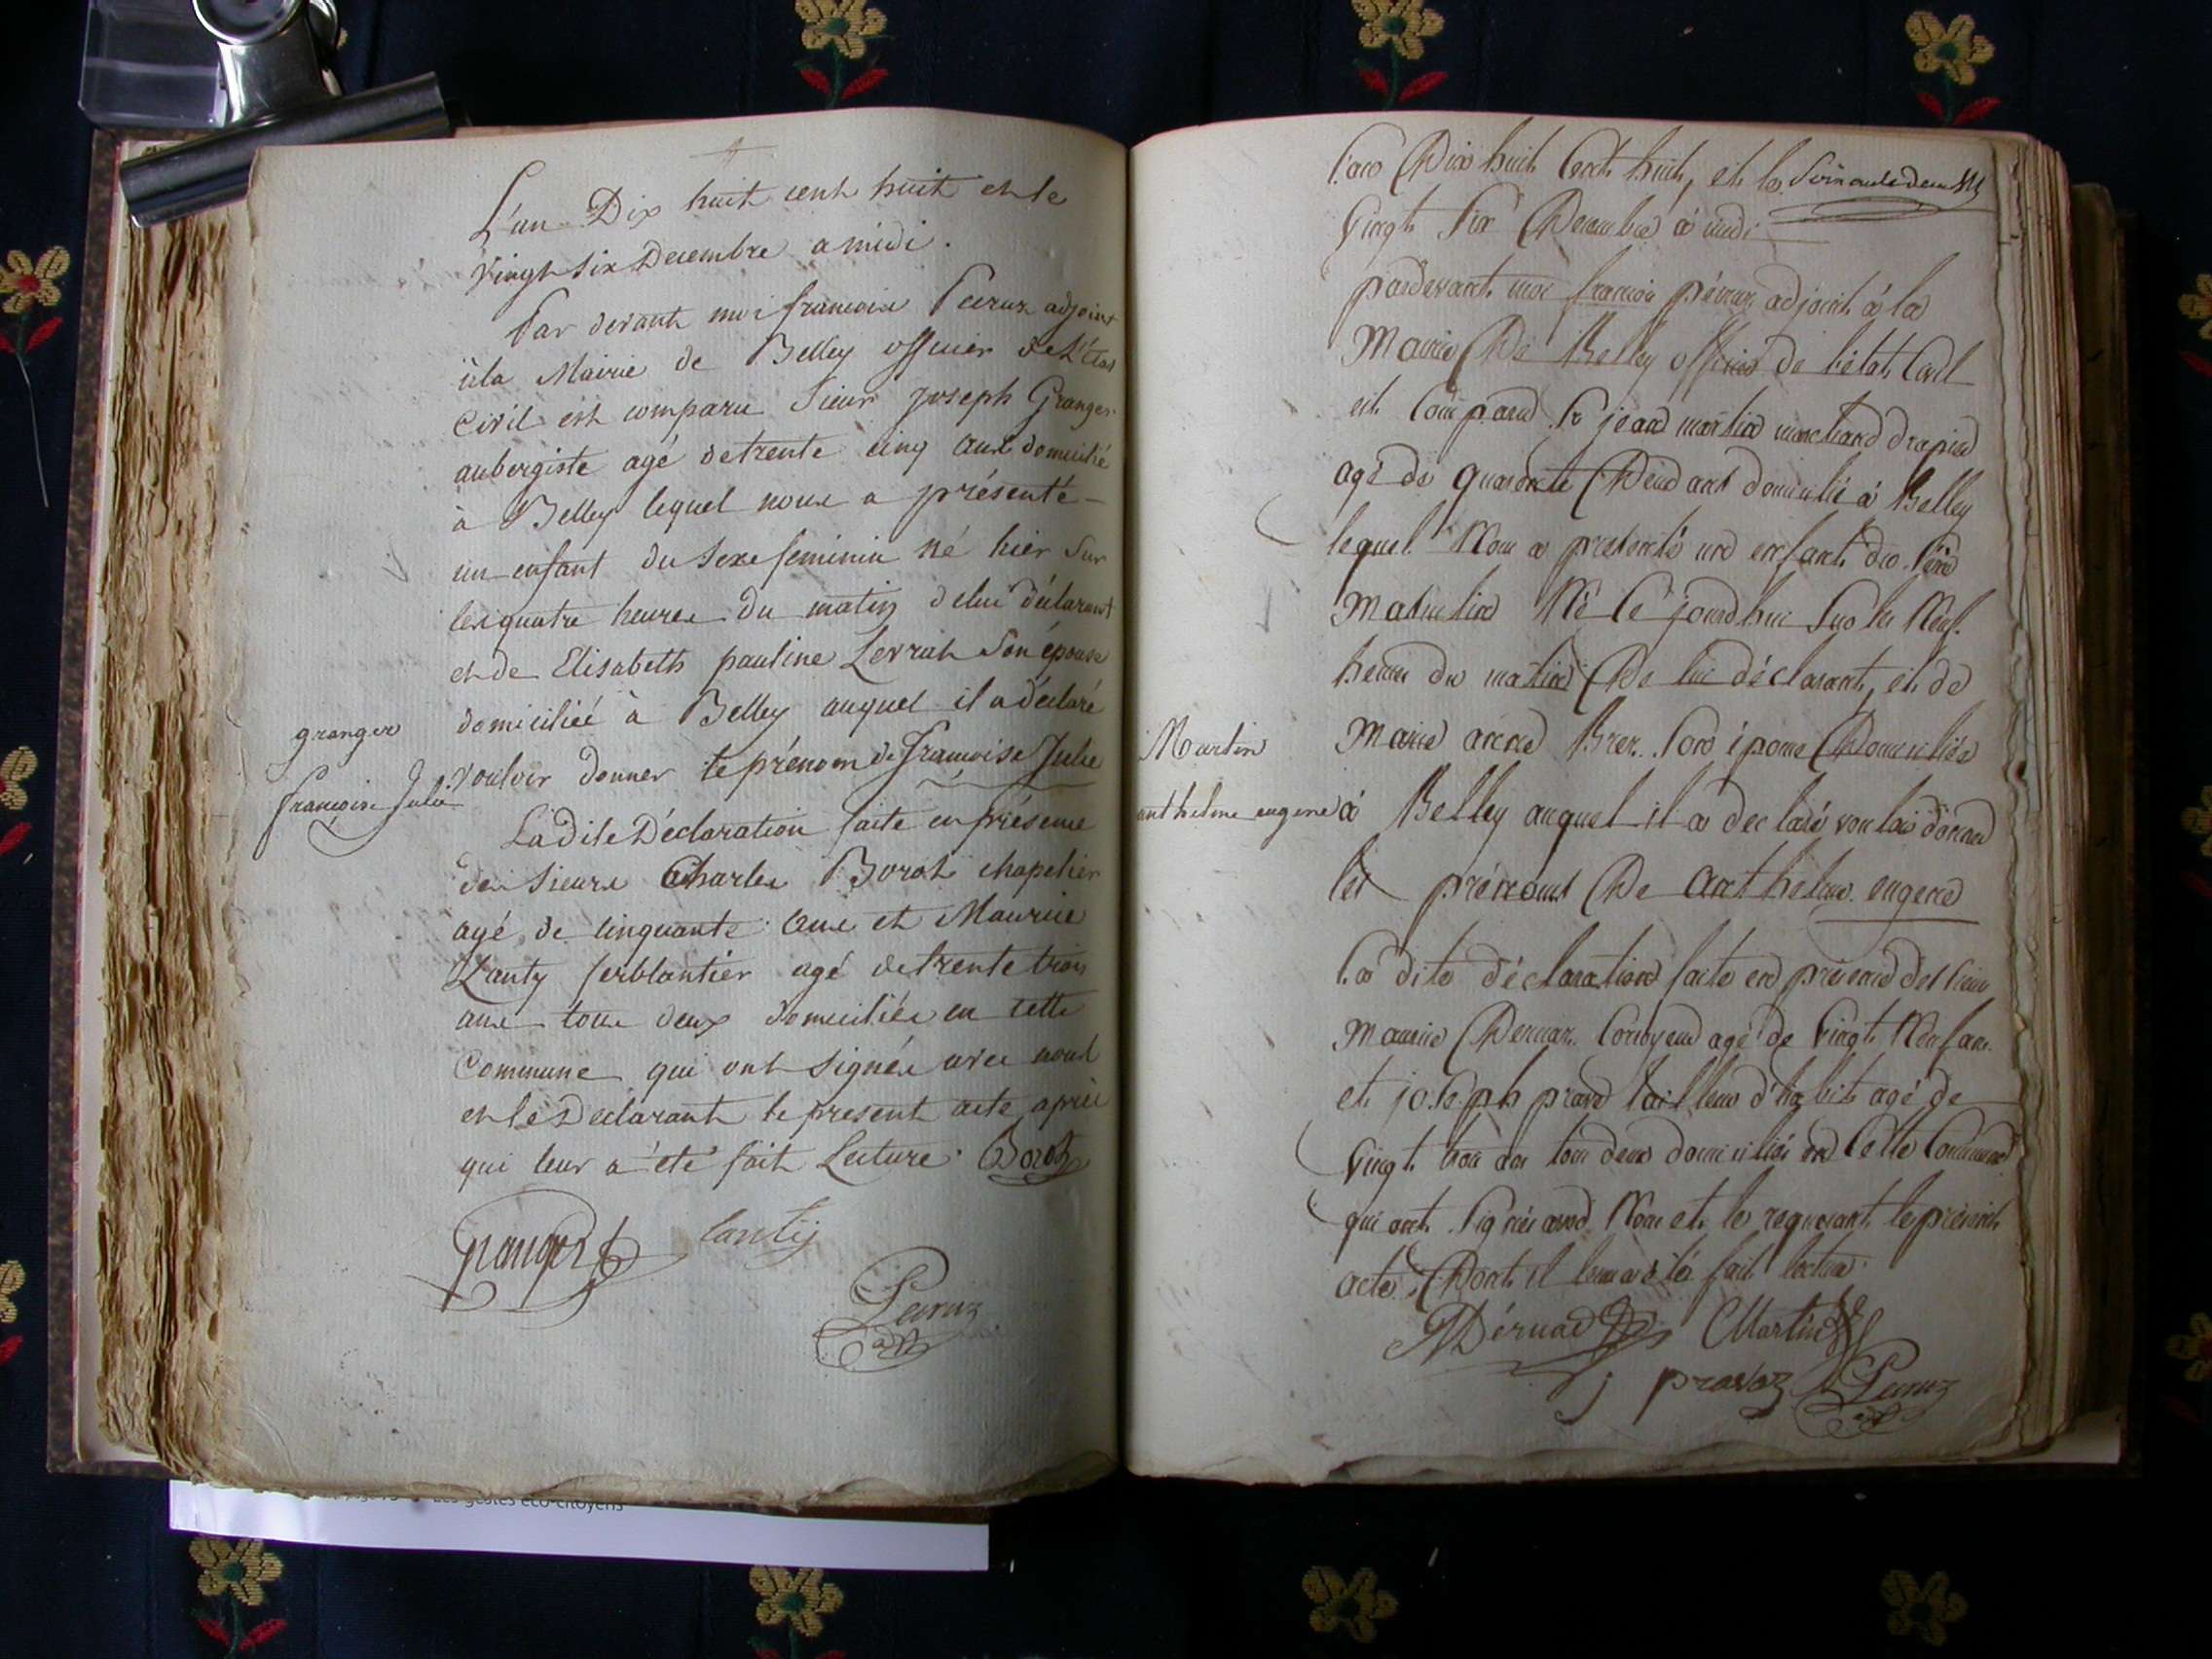 L'an Dix huit cent huit et le
vingt six Decembre a midi.
Par devant moi francois Peeruz adjoint
à la Mairie de Belley officier de L'état
Civil est comparu Sieur joseph Granger
aubergiste agé de trente cinq ans domicilié
à Belley lequel nous a présenté
un enfant du Sexe feminin né hier Sur
les quatre heures du matin de lui déclarant
et de Elisabeth pauline Levrat Son épouse
domiciliée à Belley auquel il a déclaré
vouloir donner le prénom de françoise Julie
granger
françoise Julie
La dite Déclaration faite en présence
des Sieurs Charles Borot chapelier
agé de cinquante ans et Maurice
Lanty ferblantier agé de trente trois
ans tous deux domiciliés en cette
Commune qui ont signés avec nous
et le Declarant le present acte après
qui leur a été fait Lecture. Borot
Granger lantij
Peeruz
adj
L'an Dix huit Cent huit, et le
Vingt Six Decembre à midi
pardevant moi francois péeruz adjoint à la
Mairie De Belley officier de l'état Civil
est Comparu Sr jean martin marchand drapier
agé de quarante Deux ans domicilié à Belley
lequel Nous a presenté un enfant du Sexe
Masculin Né Ce jourd'hui Sur les Neuf
heures du matin De lui déclarant, et de
Marie anne Son épouse Domiciliée
Martin
anthelme eugene
à Belley auquel il a declaré vouloir donner
les prénoms De anthelme eugene
La dite déclaration faite en présence des Sieurs
Maurice Corroyeur agé de Vingt Neuf ans
et joseph tailleur d'habits agé de
Vingt trois ans tous deux domiciliés en Cette Commune
qui ont Signés avec Nous et le requerant le présent
acte, Dont il leur a été fait lecture.
Martin
j pravaz Peeruz
adj
Les gestes éco-citoyens